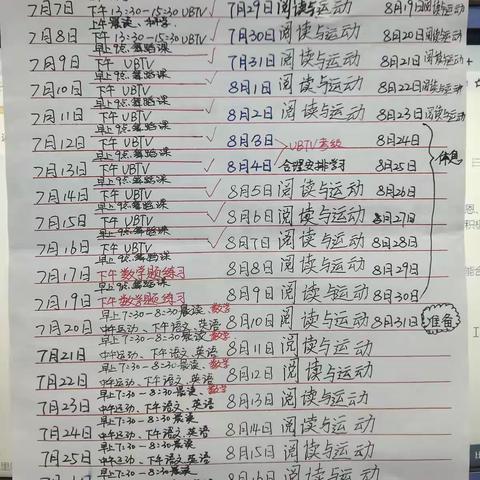 7月7日 下午13:30-15:30UBTV 7月29日 阅读与运动 8月19日阅读与运动
上午晨读、
7月8日 下午13:30-15:30UBTV 7月30日 阅读与运动 8月20日阅读与运动
早上9点舞蹈课
7月9日 下午 UBTV 7月31日 阅读与运动 8月21日阅读与运动
早上9点舞蹈课
7月10日 下午 UBTV 8月1日 阅读与运动 8月22日阅读与运动
早上9点舞蹈课
7月11日 下午 UBTV 8月2日 阅读与运动 8月23日阅读与运动
早上9点舞蹈课
7月12日 下午 UBTV 8月3日 UBTV考级 8月24日
早上9点舞蹈课
7月13日 下午 UBTV 8月4日 合理安排学习 8月25日 休息
早上9点舞蹈课
7月14日 下午 UBTV 8月5日 阅读与运动 8月26日
早上9点舞蹈课
7月15日 下午 UBTV 8月6日 阅读与运动 8月27日
早上9点舞蹈课
7月16日 下午 UBTV 8月7日 阅读与运动 8月28日
早上9点舞蹈课
7月17日 下午数学题练习 8月8日 阅读与运动 8月29日
早上9点舞蹈课
7月19日 下午数学题练习 8月9日 阅读与运动 8月30日
早上7:30-8:30晨读、数学
7月20日 中午运动、下午语文、英语 8月10日 阅读与运动 8月31日 准备
早上7:30-8:30晨读、数学
7月21日 中午运动、下午语文、英语 8月11日 阅读与运动
早上7:30-8:30晨读、数学
7月22日 中午运动、下午语文、英语 8月12日 阅读与运动
早上7:30-8:30晨读、数学
7月23日 中午运动、下午语文、英语 8月13日 阅读与运动
早上7:30-8:30晨读
7月24日 中午运动、下午语文、英语 8月14日 阅读与运动
早上7:30-8:30晨读
7月25日 中午运动、下午语文、英语 8月15日 阅读与运动
早上7:30-8:30晨读
8月16日 阅读与运动